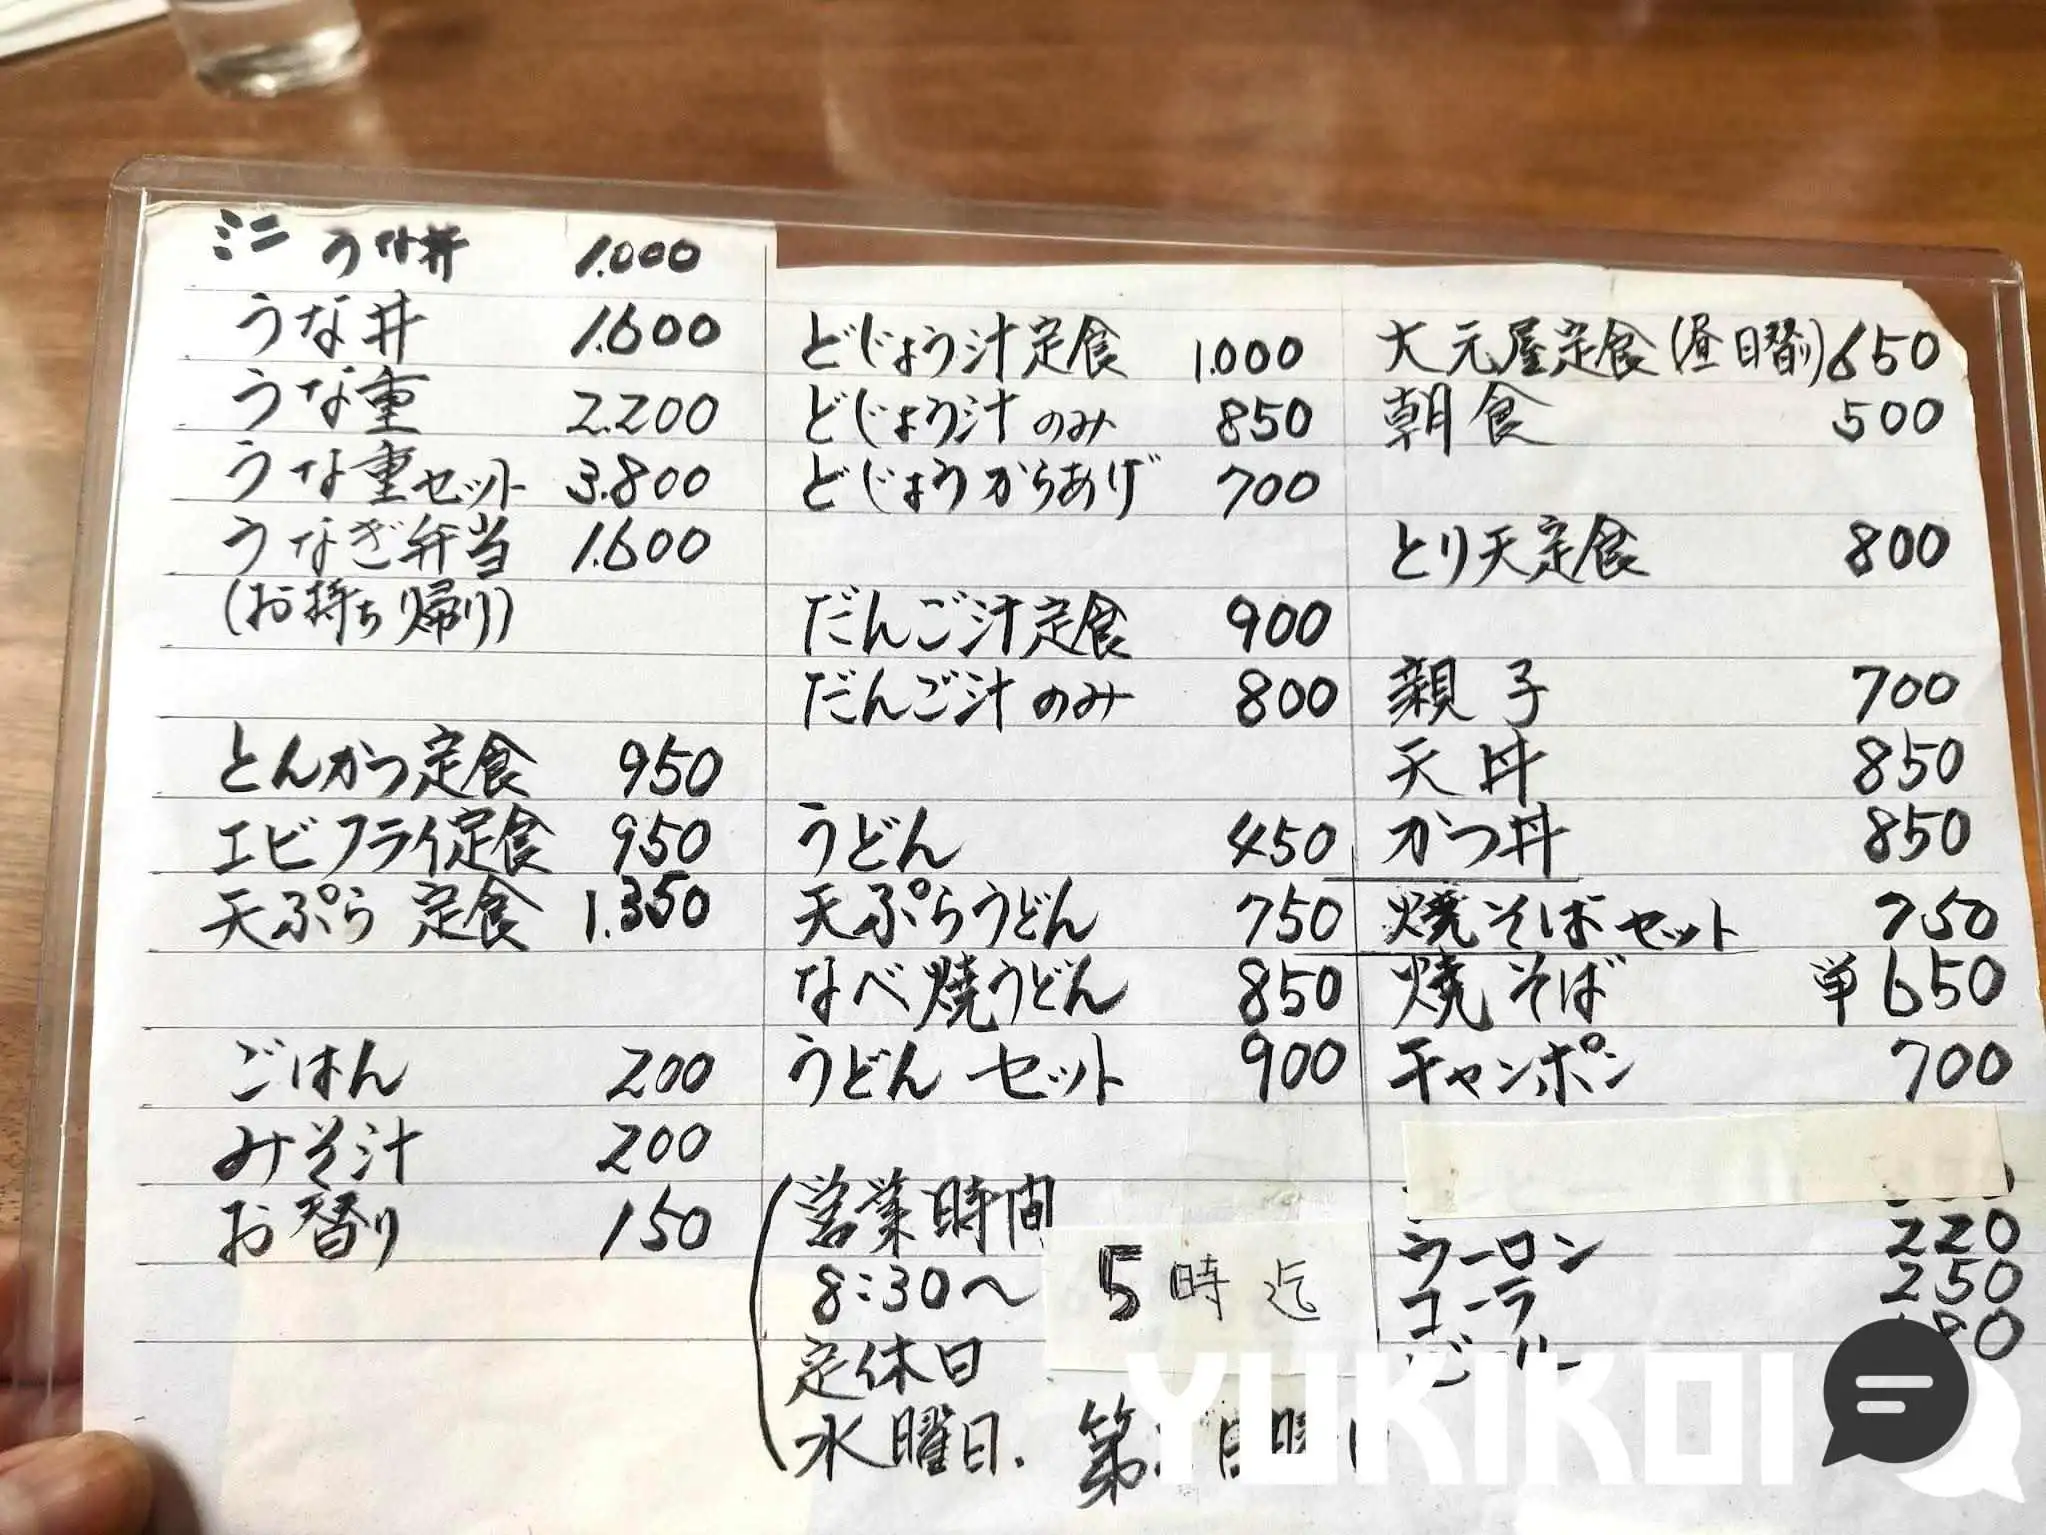 ミニ うな丼 1.000
うな丼 1.600
うな重 2.200
うな重セット 3.800
うなぎ弁当 1.600
(お持ち帰り)
とんかつ定食 950
エビフライ定食 950
天ぷら定食 1.350
ごはん 200
みそ汁 200
お替り 150
どじょう汁定食 1.000
どじょう汁のみ 850
どじょうからあげ 700
だんご汁定食 900
だんご汁のみ 800
うどん 450
天ぷらうどん 750
なべ焼うどん 850
うどんセット 900
営業時間
8:30〜 5時迄
定休日
水曜日. 第
大元屋定食(昼日替り) 650
朝食 500
とり天定食 800
親子 700
天丼 850
かつ丼 850
焼そばセット 750
焼そば 単650
チャンポン 700
ウーロン 220
コーラ 250
YUKIKOI